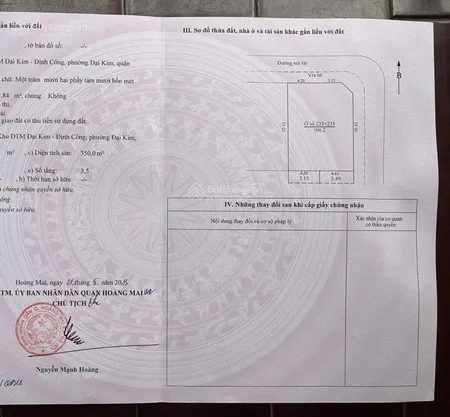 ắn liền với đất
, tờ bản đồ số: -/-
M Đại Kim - Định Công, phường Đại Kim, quận
chữ: Một trăm mười hai phẩy tám mươi bốn mét
,84 m², chung Không
thị.
giao đất có thu tiền sử dụng đất.
Khu ĐTM Đại Kim - Định Công, phường Đại Kim,
m² , c) Diện tích sàn: 350,0 m²
, e) Số tầng: 3,5
h) Thời hạn sở hữu: -/-
chứng nhận quyền sở hữu.
Hoàng Mai, ngày
TM. ỦY BAN NHÂN DÂN QUẬN HOÀNG MAI
CHỦ TỊCH
Nguyễn Mạnh Hoàng
III. Sơ đồ thửa đất, nhà ở và tài sản khác gắn liền với đất
Đường nội bộ
Vỉa hè
4.20 3.15
B
Ô số 233+234
106.2
4.20 4.10
3.15 3.49
IV. Những thay đổi sau khi cấp giấy chứng nhận
Nội dung thay đổi và cơ sở pháp lý
Xác nhận của cơ quan
có thẩm quyền